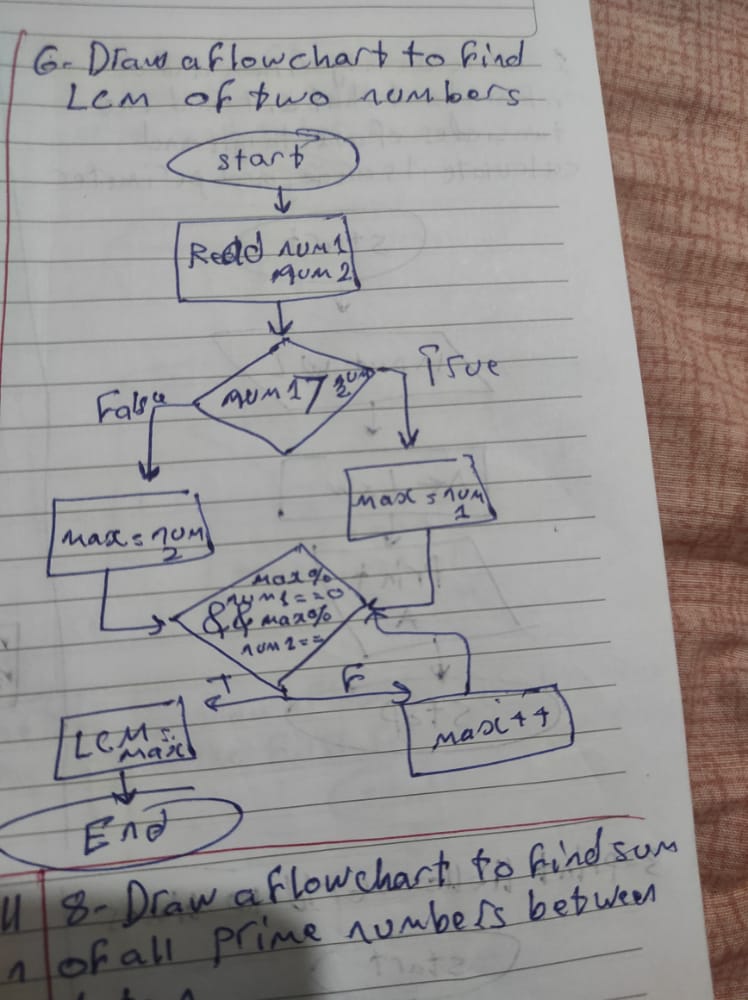 6- Draw a flowchart to find
LCM of two numbers
start
Read num1
num2
num1 > num
2
True
False
max = num
1
max = num
2
max%
num1==0
&& max%
num2==
T
F
LCM =
max
max++
End
8- Draw a flowchart to find sum
of all prime numbers between